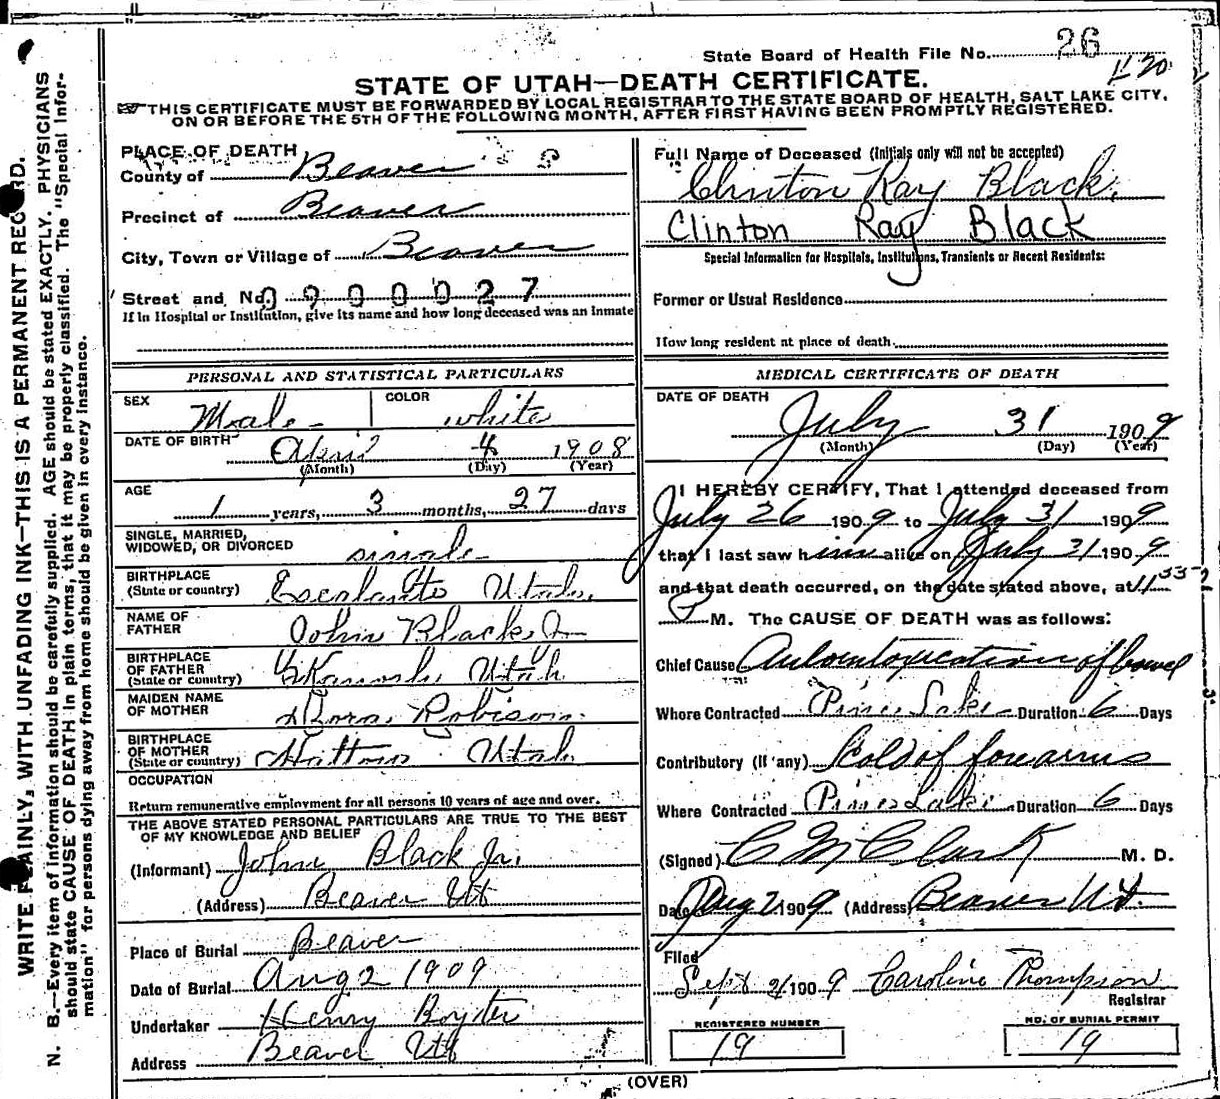 State Board of Health File No. 26
STATE OF UTAH—DEATH CERTIFICATE.
THIS CERTIFICATE MUST BE FORWARDED BY LOCAL REGISTRAR TO THE STATE BOARD OF HEALTH, SALT LAKE CITY,
ON OR BEFORE THE 5TH OF THE FOLLOWING MONTH, AFTER FIRST HAVING BEEN PROMPTLY REGISTERED.
WRITE PLAINLY, WITH UNFADING INK—THIS IS A PERMANENT RECORD.
N. B.—Every item of information should be carefully supplied. AGE should be stated EXACTLY. PHYSICIANS
should state CAUSE OF DEATH in plain terms, that it may be properly classified. The "Special Infor-
mation" for persons dying away from home should be given in every instance.
PLACE OF DEATH
County of Beaver
Precinct of Beaver
City, Town or Village of Beaver
Street and No. 0900027
If in Hospital or Institution, give its name and how long deceased was an inmate
Full Name of Deceased (Initials only will not be accepted)
Clinton Ray Black.
Clinton Ray Black
Special Information for Hospitals, Institutions, Transients or Recent Residents:
Former or Usual Residence
How long resident at place of death.
PERSONAL AND STATISTICAL PARTICULARS
SEX Male COLOR white
DATE OF BIRTH April 4 1908
(Month) (Day) (Year)
AGE
1 years, 3 months, 27 days
SINGLE, MARRIED,
WIDOWED, OR DIVORCED single
BIRTHPLACE
(State or country) Escalante Utah.
NAME OF
FATHER John Black Jr
BIRTHPLACE
OF FATHER
(State or country) Kanosh, Utah
MAIDEN NAME
OF MOTHER Robison.
BIRTHPLACE
OF MOTHER
(State or country) Hatton Utah
OCCUPATION
Return remunerative employment for all persons 10 years of age and over.
THE ABOVE STATED PERSONAL PARTICULARS ARE TRUE TO THE BEST
OF MY KNOWLEDGE AND BELIEF
(Informant) John Black Jr.
(Address) Beaver Ut
Place of Burial Beaver
Date of Burial Aug 2 1909
Undertaker Henry Boyter
Address Beaver Ut
MEDICAL CERTIFICATE OF DEATH
DATE OF DEATH
July 31 1909
(Month) (Day) (Year)
I HEREBY CERTIFY, That I attended deceased from
July 26 1909 to July 31 1909
that I last saw him alive on July 31 1909
and that death occurred, on the date stated above, at 11 35
P M. The CAUSE OF DEATH was as follows:
Chief Cause Autointoxication of bowel
Where Contracted Pine Lake Duration 6 Days
Contributory (If any) Cold of forearms
Where Contracted Pine Lake Duration 6 Days
(Signed) C M Clark M. D.
Date Aug 2 1909 (Address) Beaver Ut.
Filed
Sept 1909 Caroline Thompson
Registrar
REGISTERED NUMBER
19
NO. OF BURIAL PERMIT
19
(OVER)